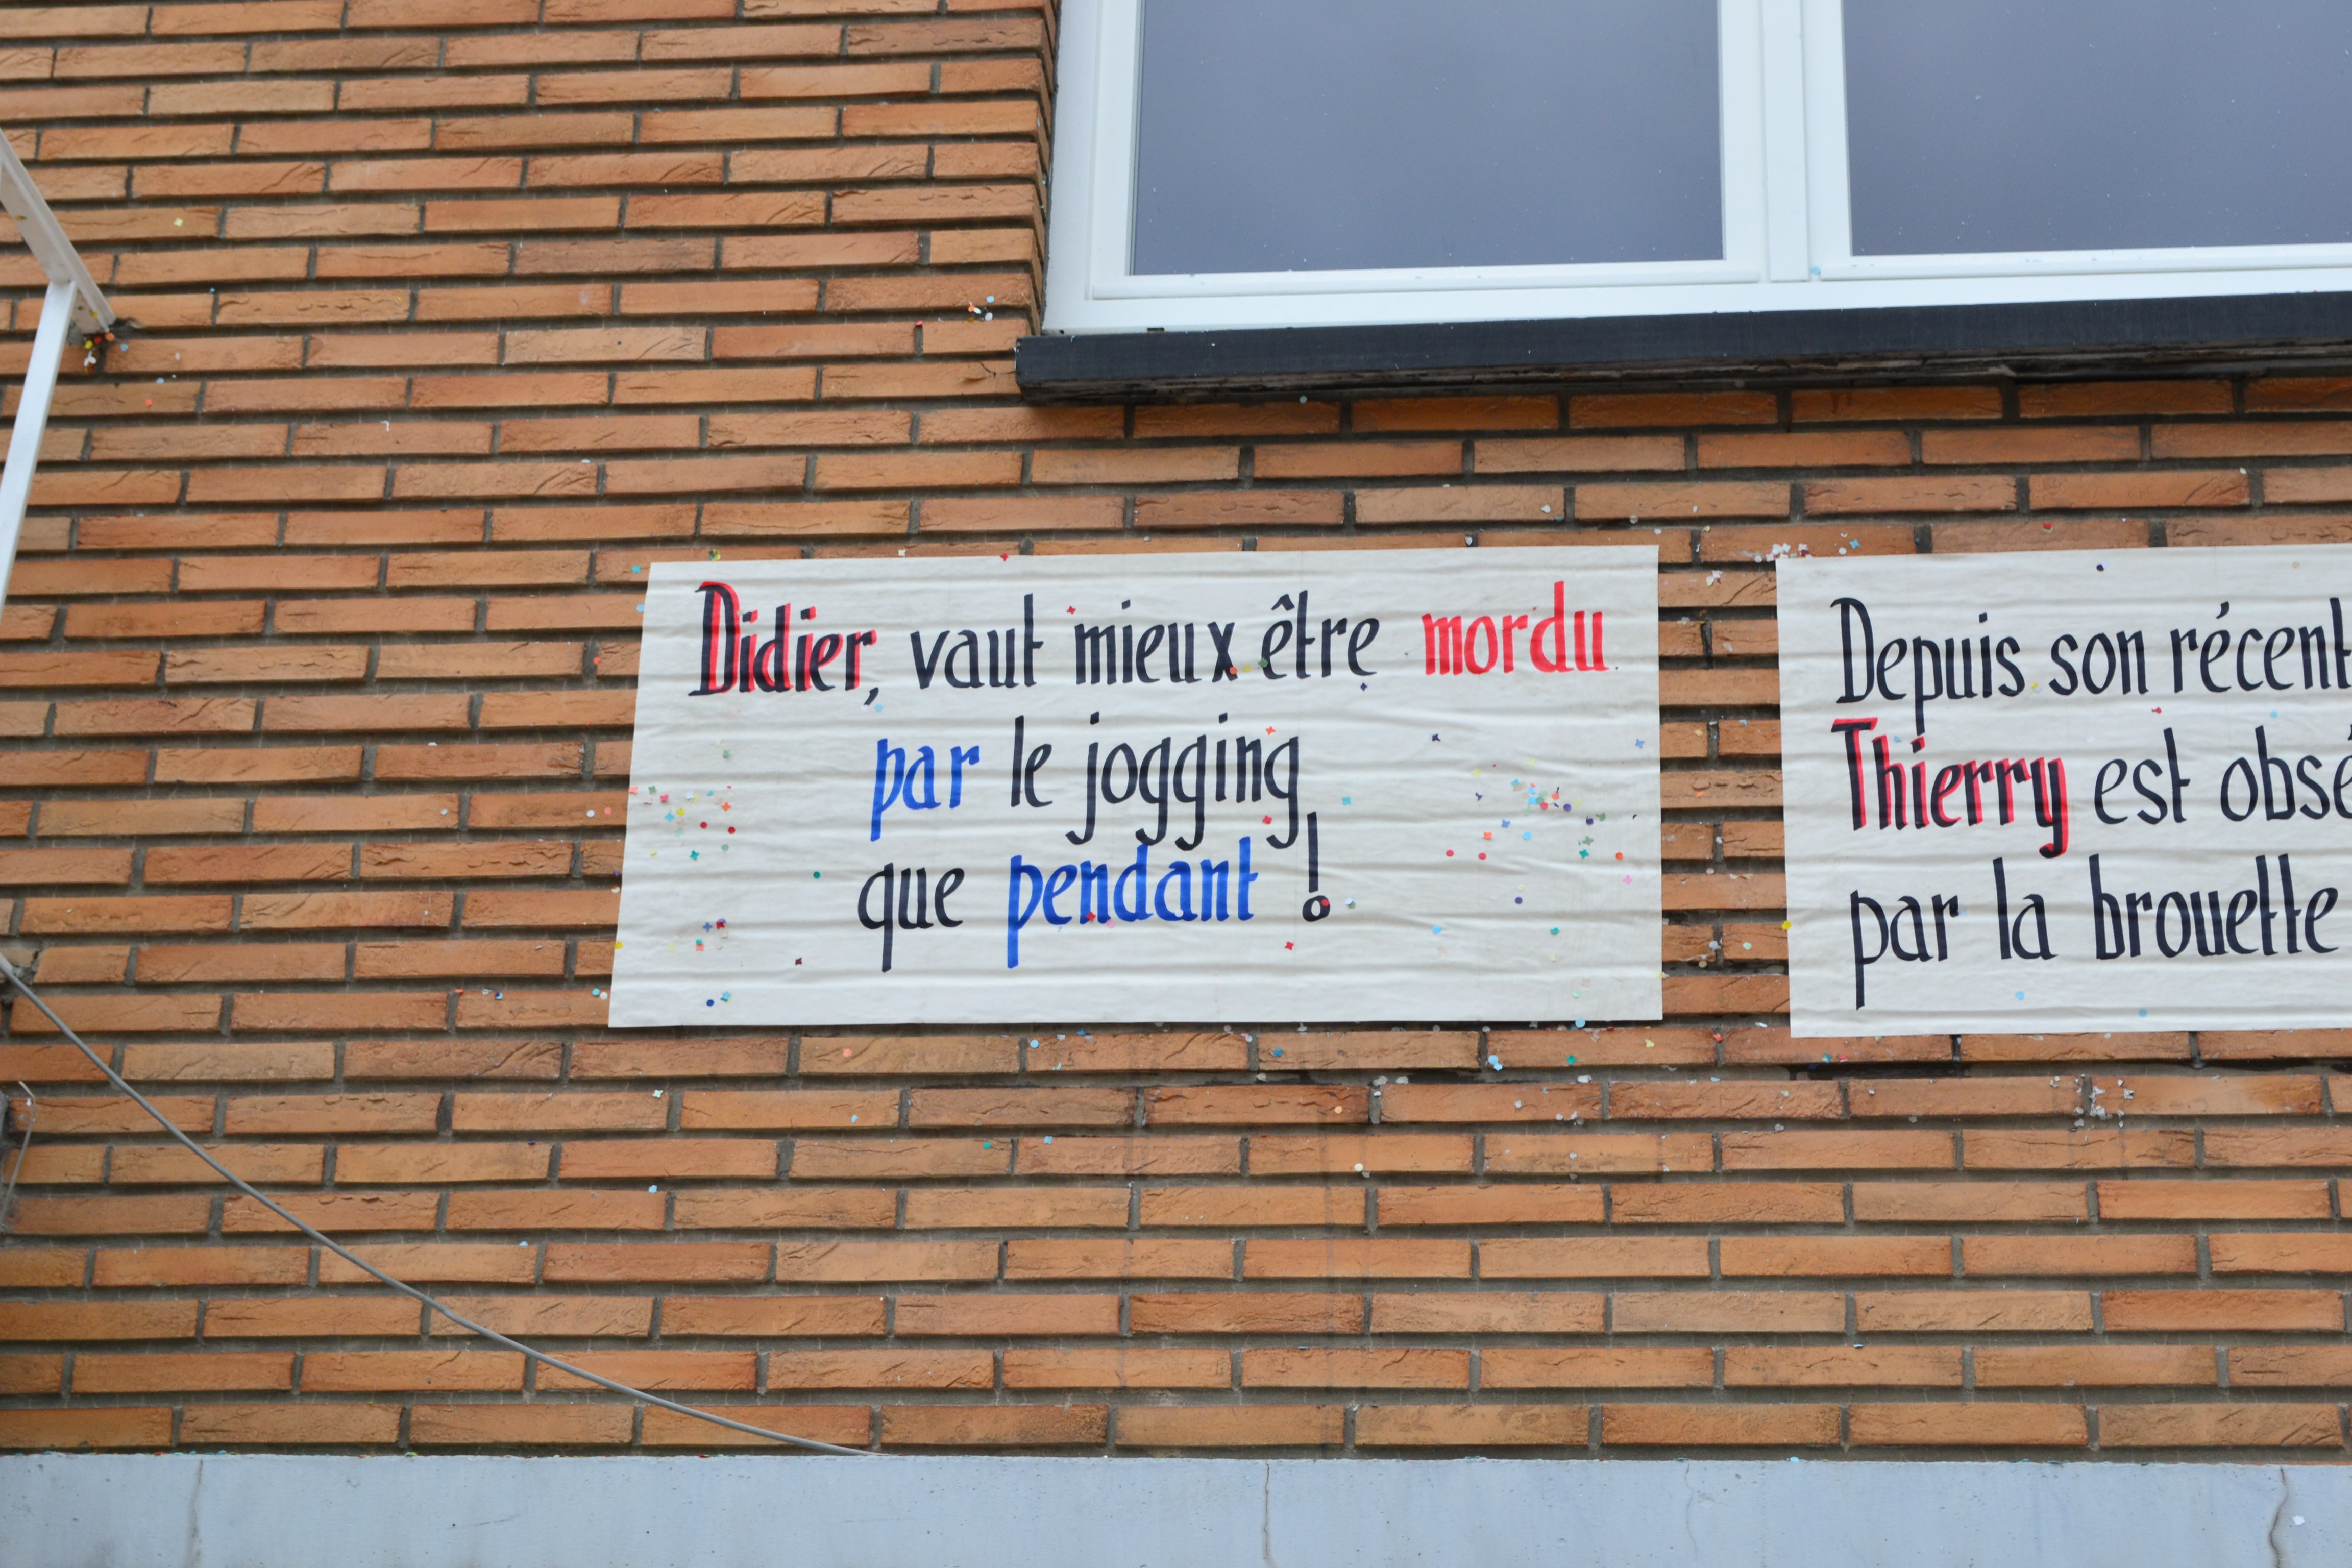 Didier, vaut mieux être mordu
par le jogging
que pendant !
Depuis son récent
Thierry est
par la brouette